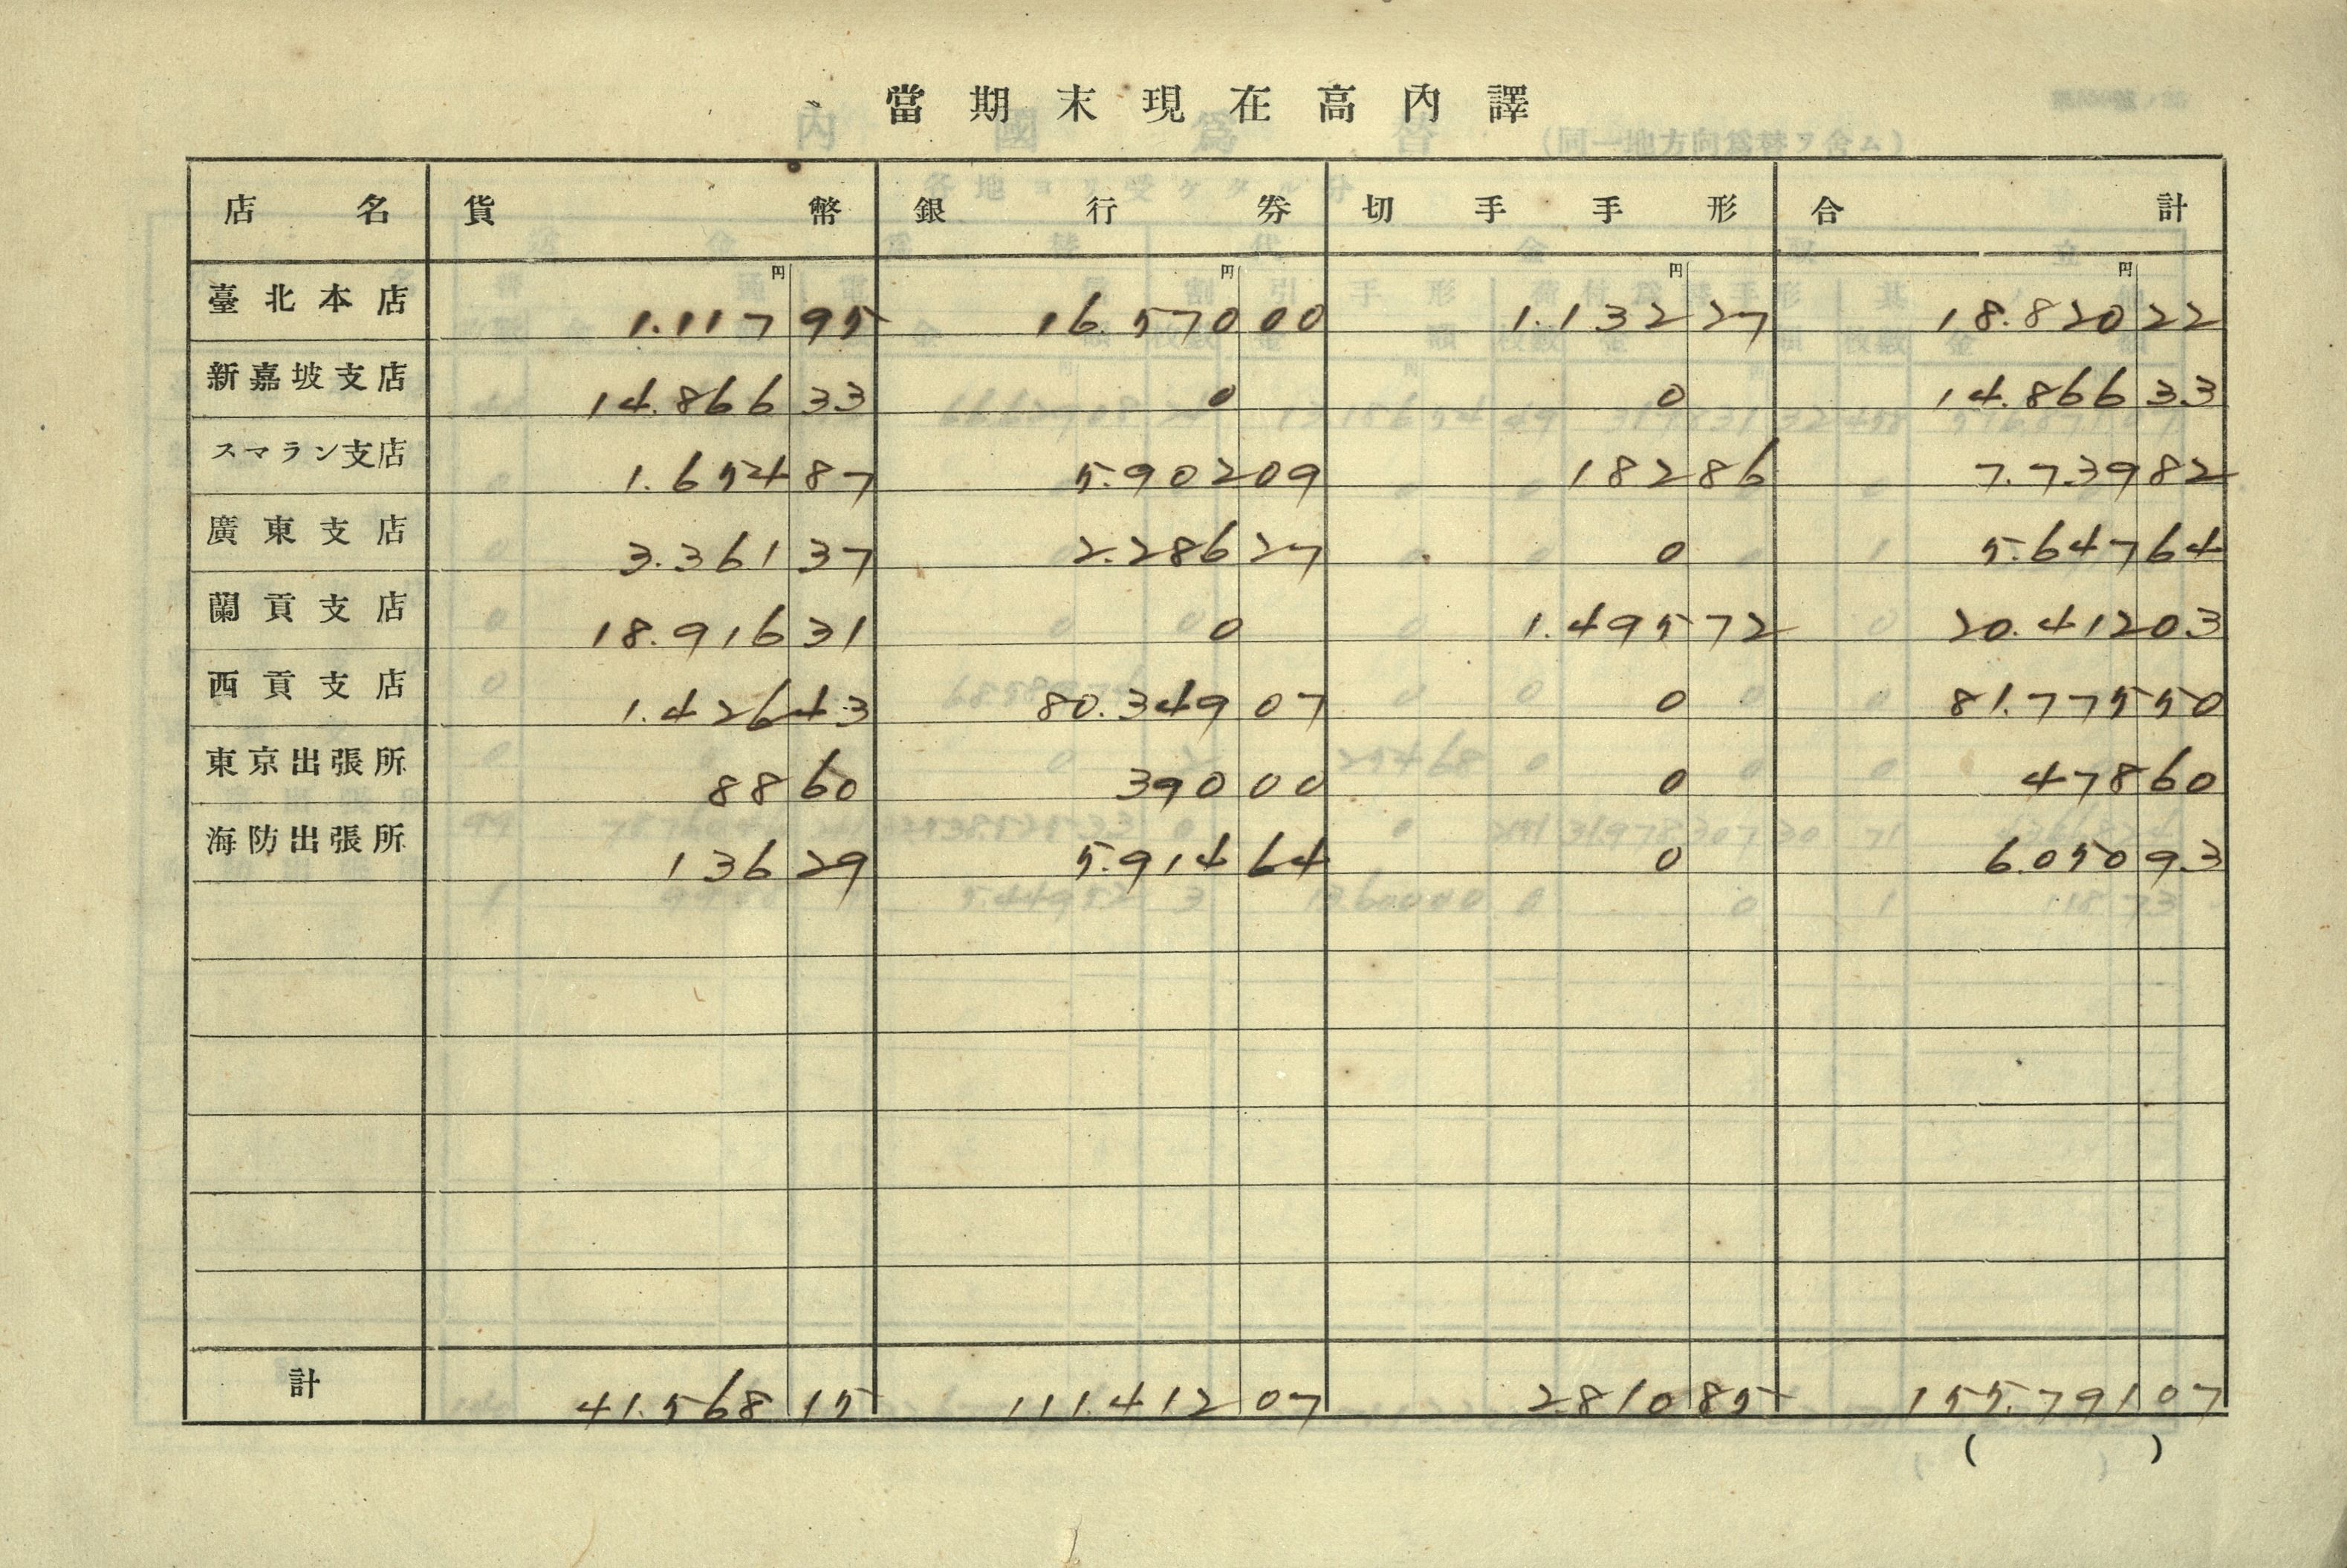 當期末現在高內譯
店名 貨幣 銀行券 切手手形 合計
円 円 円 円
臺北本店 1.117 95 16.570 00 1.132 27 18.820 22
新嘉坡支店 14.866 33 0 0 14.866 33
スマラン支店 1.654 87 5.902 09 182 86 7.739 82
廣東支店 3.361 37 2.286 27 0 5.647 64
蘭貢支店 18.916 31 0 1.495 72 20.412 03
西貢支店 1.426 43 80.349 07 0 81.775 50
東京出張所 88 60 390 00 0 478 60
海防出張所 136 29 5.914 64 0 6.050 93
計 41.568 15 111.412 07 2.810 85 155.791 07
( )